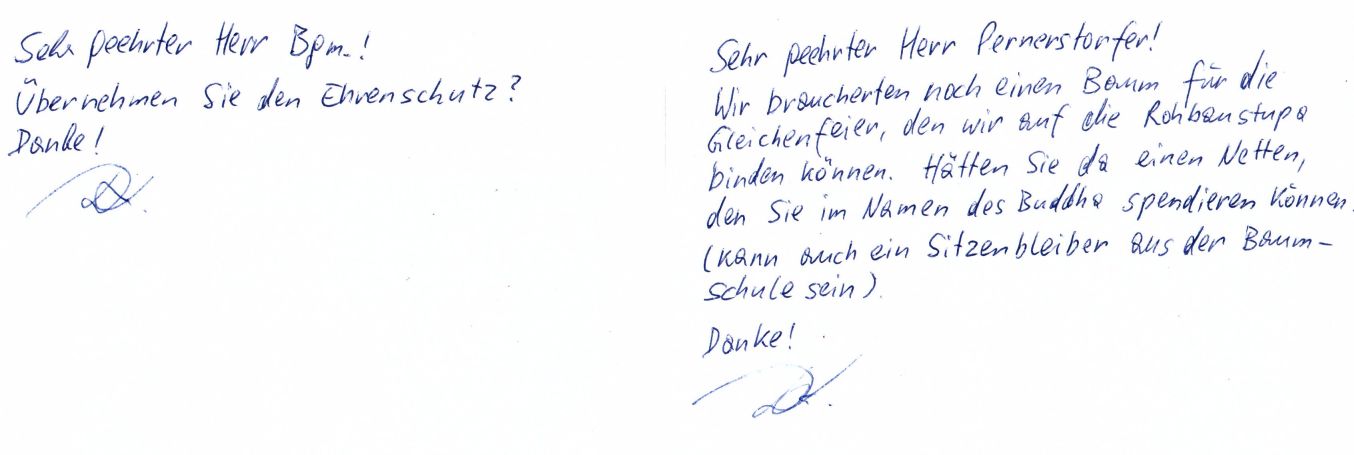 Sehr geehrter Herr Bgm.!
Übernehmen Sie den Ehrenschutz?
Danke!
Sehr geehrter Herr Pernerstorfer!
Wir braucherten noch einen Baum für die
Gleichenfeier, den wir auf die Rohbaustupa
binden können. Hätten Sie da einen Netten,
den Sie im Namen des Buddha spendieren können.
(kann auch ein Sitzenbleiber aus der Baum-
schule sein)
Danke!